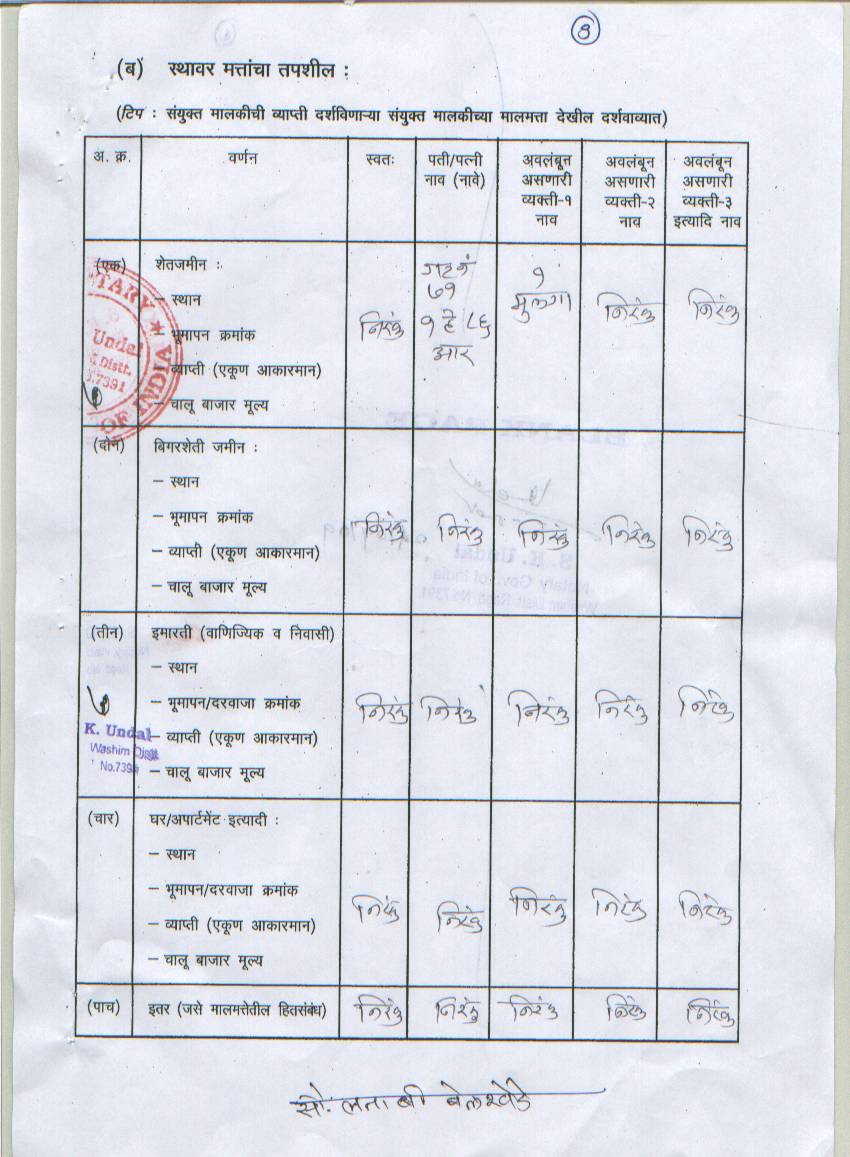 ३
(ब) स्थावर मत्तांचा तपशील :
(टिप : संयुक्त मालकीची व्याप्ती दर्शविणाऱ्या संयुक्त मालकीच्या मालमत्ता देखील दर्शवाव्यात)
अ. क्र. वर्णन स्वतः पती/पत्नी नाव (नावे) अवलंबून असणारी व्यक्ती-१ नाव अवलंबून असणारी व्यक्ती-२ नाव अवलंबून असणारी व्यक्ती-३ इत्यादि नाव
(एक) शेतजमीन :
– स्थान
– भूमापन क्रमांक
– व्याप्ती (एकूण आकारमान)
– चालू बाजार मूल्य
निरंक गट नं ७१ १ हे ८६ आर १ मुलगा निरंक निरंक
NOTARY
Undal
Distt.
.7391
OF INDIA
(दोन) बिगरशेती जमीन :
– स्थान
– भूमापन क्रमांक
– व्याप्ती (एकूण आकारमान)
– चालू बाजार मूल्य
निरंक निरंक निरंक निरंक निरंक
(तीन) इमारती (वाणिज्यिक व निवासी)
– स्थान
– भूमापन/दरवाजा क्रमांक
– व्याप्ती (एकूण आकारमान)
– चालू बाजार मूल्य
निरंक निरंक निरंक निरंक निरंक
K. Undal
Washim Distt
No.739
(चार) घर/अपार्टमेंट इत्यादी :
– स्थान
– भूमापन/दरवाजा क्रमांक
– व्याप्ती (एकूण आकारमान)
– चालू बाजार मूल्य
निरंक निरंक निरंक निरंक निरंक
(पाच) इतर (जसे मालमत्तेतील हितसंबंध) निरंक निरंक निरंक निरंक निरंक
सौ. लता बी